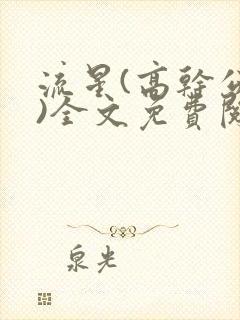 流星(高幹公
)全文免費閱
泉光